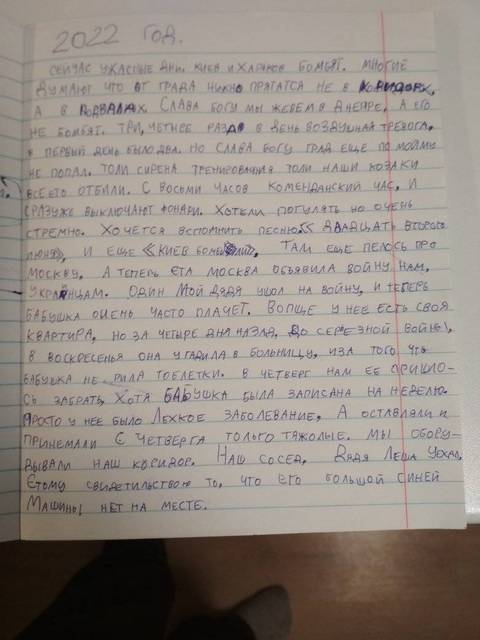 2022 год.
Сейчас ужасные дни. Киев и Харков бомбят. Многие
думают что от града нужно прятатся не в коридорх,
а в подвалах Слава богу мы жевем в Днепре, а его
не бомбят. Три, четыее раза в день воздушная тревога,
в первый день было два. Но слава богу град еще по моиму
не попал. Толи сирена тренирования толи наши козаки
все его отбили. С восьми часов комендански час, и
сразуже выключают фонари. Хотели погулять но очень
стремно. Хочется вспомнить песню "двадцать второго
июня", и еще «Киев бомбили», там еще пелось про
Москву, а теперь ета Москва объявила войну нам,
украинцам. Один мой дядя ушол на войну, и теперь
бабушка очень часто плачет. Вопще у нее есть своя
квартира, но за четыре дня назад, до серезной войны,
в воскресенья она угадила в больницу, иза того что
бабушка не пила тоблетки. В четверг нам ее пришло-
сь забрать, хотя бабушка была записана на неделю.
Просто у нее было лехкое заболевание, а оставляли и
принемали с четверга толко тяжолые. Мы обору-
дывали наш коридор. Наш сосед, дядя Леша уехал.
Етому свидетильствою то, что его большой синей
машины нет на месте.